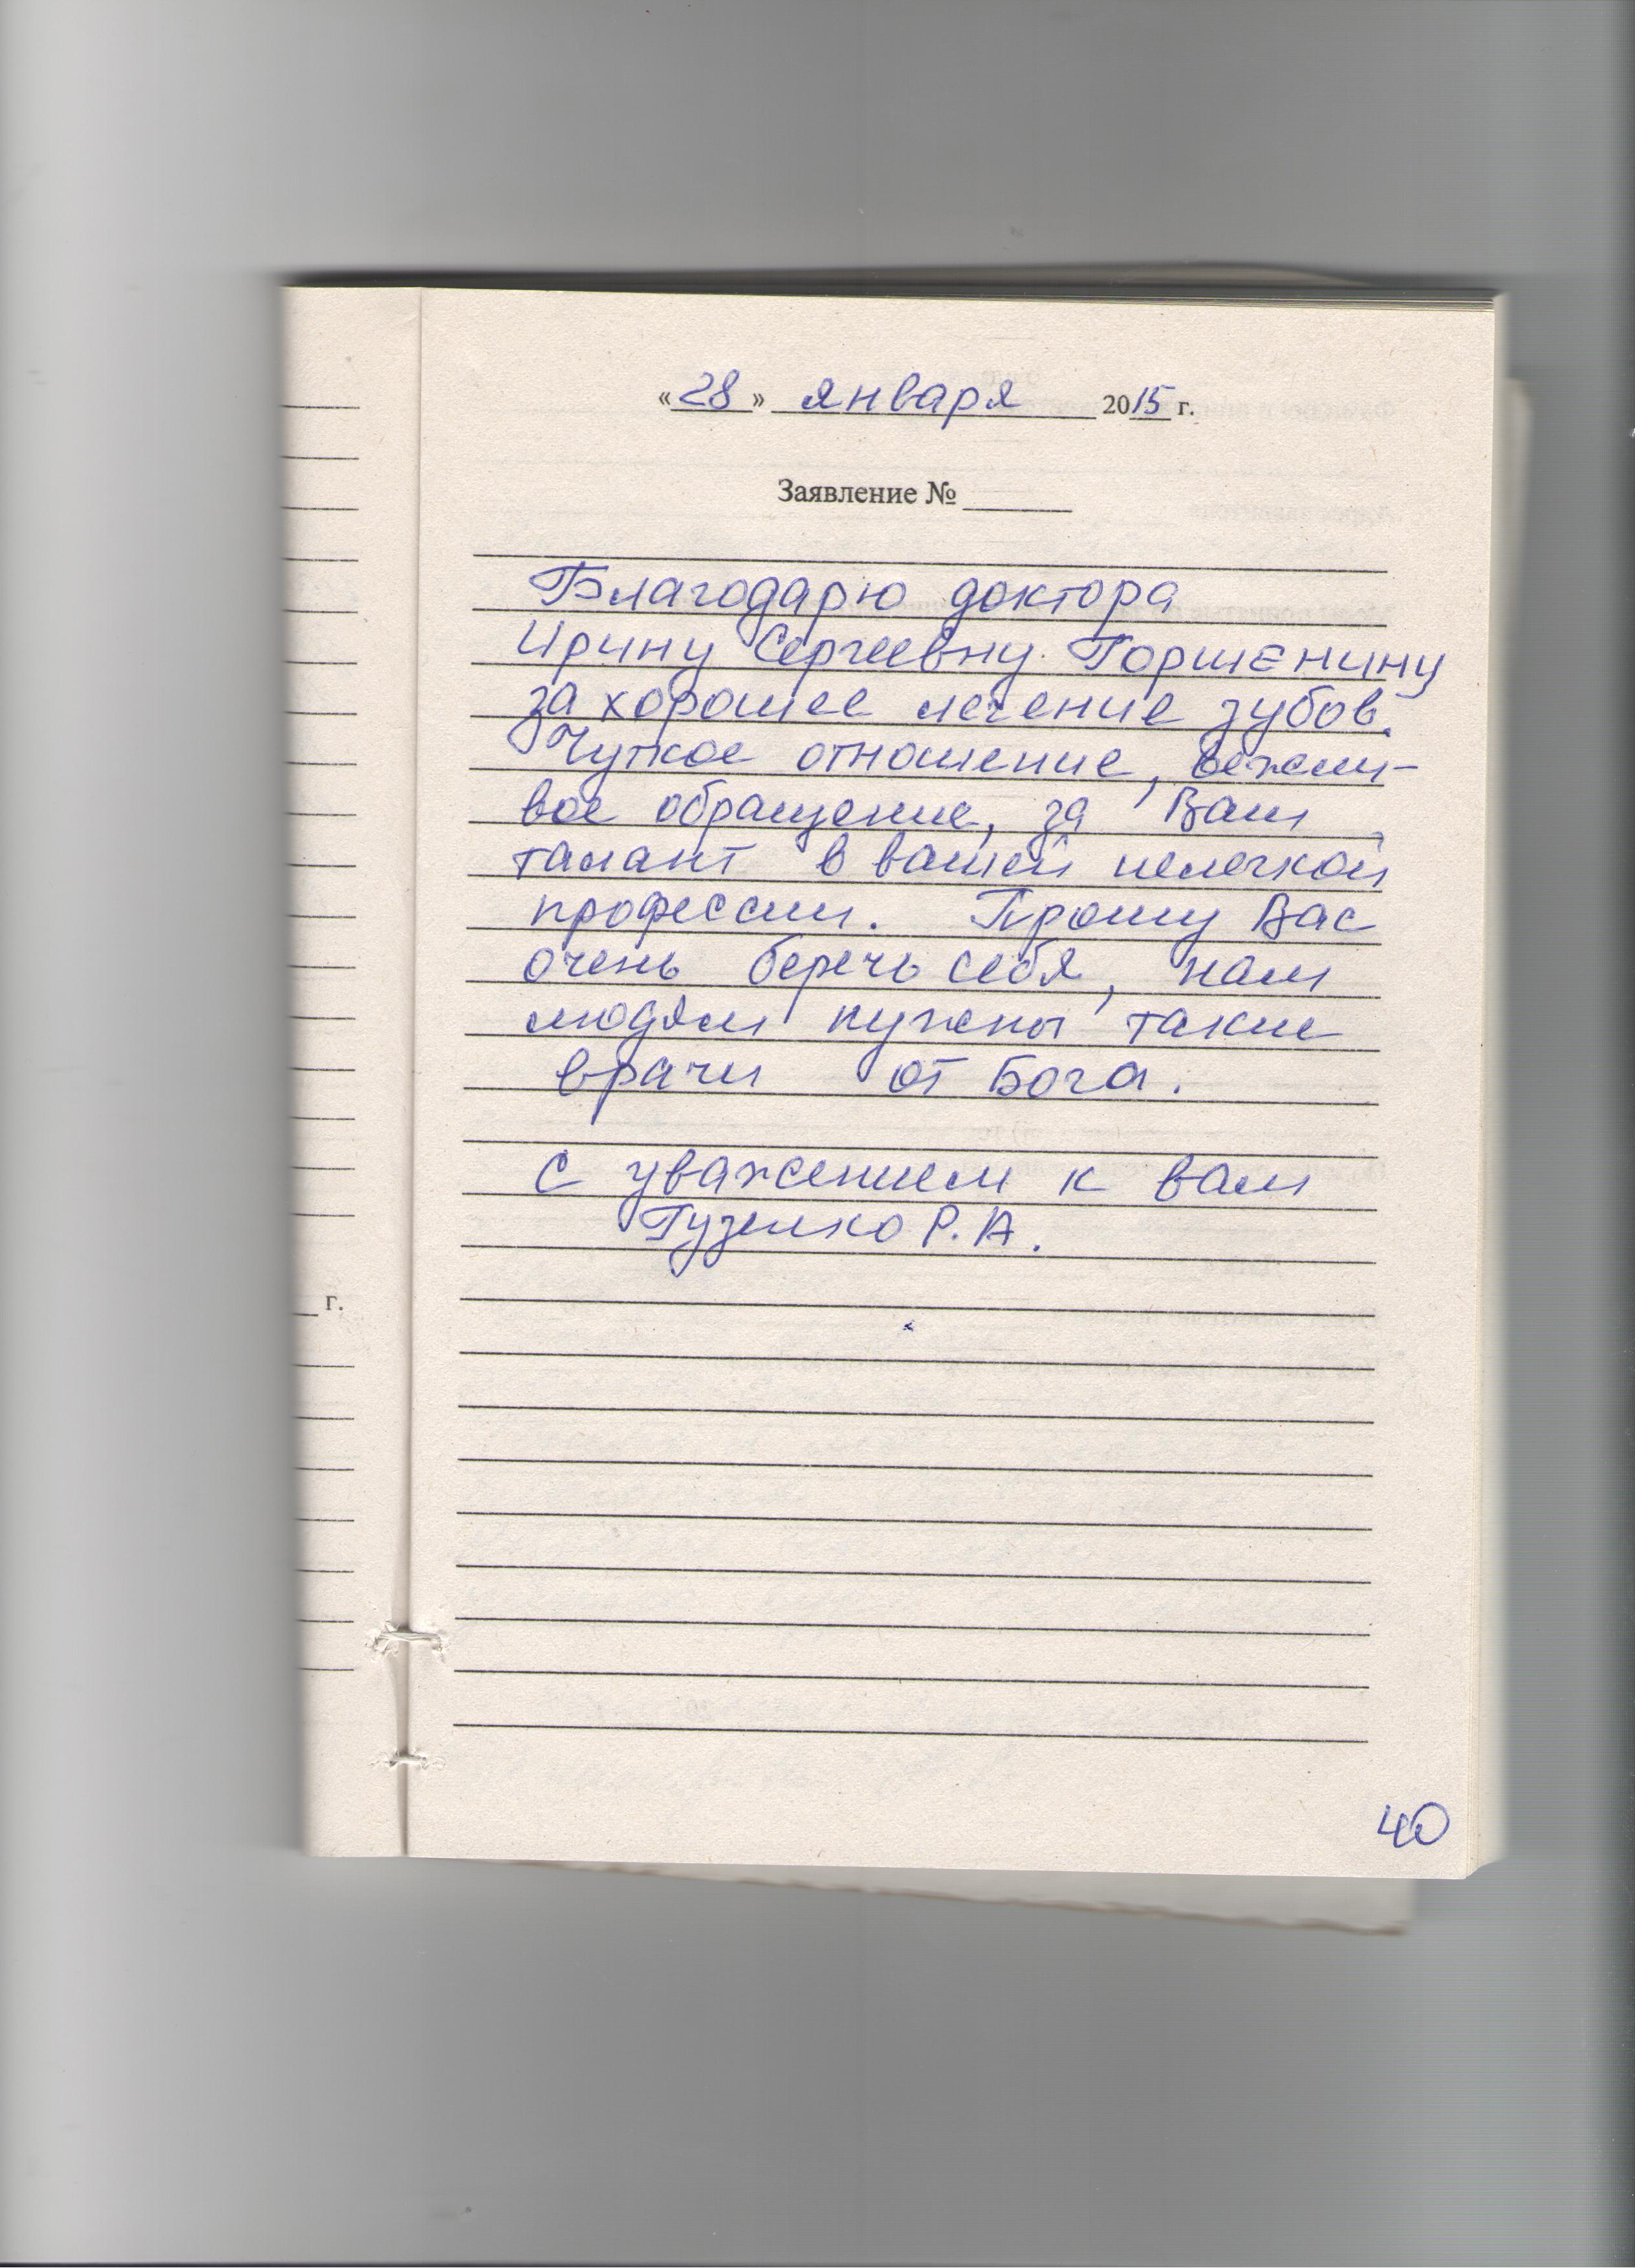 «28» января 2015 г.
Заявление № ______
Благодарю доктора
Ирину Сергеевну Горшенину
за хорошее лечение зубов.
Чуткое отношение, вежли-
вое обращение, за Ваш
талант в вашей нелегкой
профессии. Прошу Вас
очень беречь себя, нам
людям нужны такие
врачи от Бога.
С уважением к вам
Гузенко Р.А.
г.
40